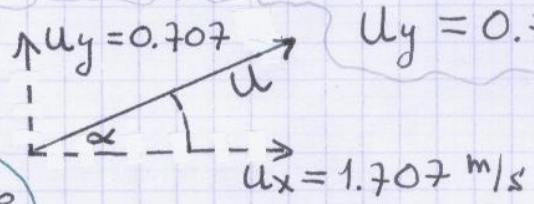 uy = 0.707
uy = 0.
u
α
ux = 1.707 m/s